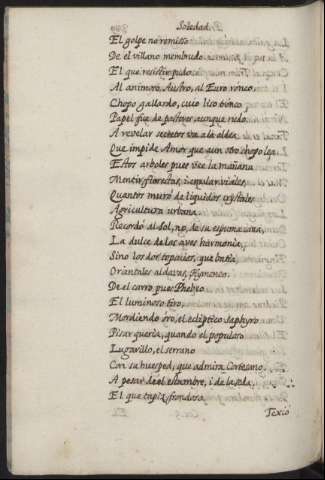 Soledad.
El golpe no remisso
De el villano membrudo
El que resistir pudo
Al animoso Austro, al Euro ronco
Chopo gallardo, cuio liso tronco
Papel fue de pastores aunque rudo.
A revelar secretos va a la aldea
Que impide Amor que aun otro chopo lea
Estos arboles pues vee la mañana
Mentir florestas, i emular viales
Quantos muró de liquidos crystales
Agricultura urbana
Recordó al Sol, no, de su espuma cana,
La dulce de las aves harmonia,
Sino los dos topacios, que batia,
Orientales aldavas, Hymeneo.
De el carro pues Phebeo
El luminoso tiro,
Mordiendo oro, el ecliptico saphyro
Pisar queria, quando el populoso
Lugarillo, el serrano
Con su huesped, que admira Cortesano
A pesar de el estambre, i de la seda,
El que tapiz frondoso
Texió